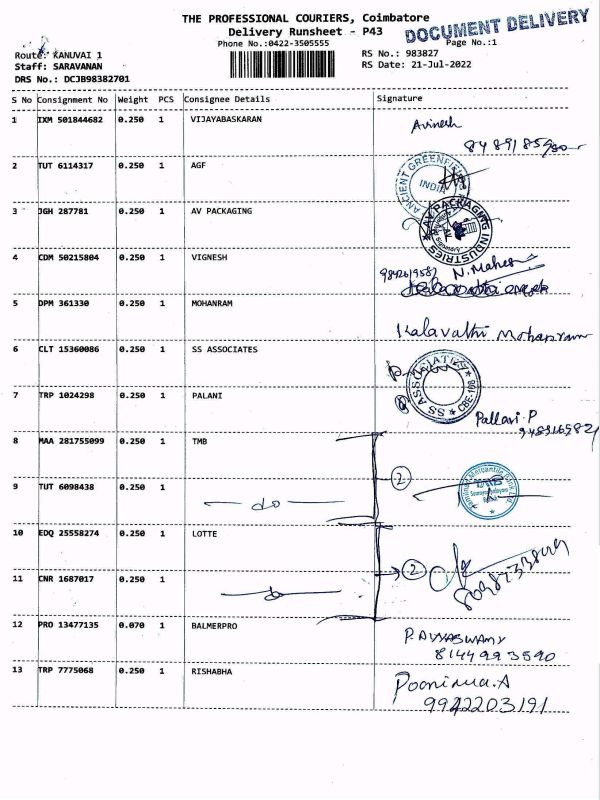 THE PROFESSIONAL COURIERS, Coimbatore
DOCUMENT DELIVERY
Delivery Runsheet - P43
Phone No.:0422-3505555
Page No.:1
Route: KANUVAI 1
RS No.: 983827
Staff: SARAVANAN
RS Date: 21-Jul-2022
DRS No.: DCJB98382701
S No Consignment No Weight PCS Consignee Details Signature
1 IXM 501844682 0.250 1 VIJAYABASKARAN Avinesh
2 TUT 6114317 0.250 1 AGF
ANCIENT GREENFIELD INDIA
3 JGH 287781 0.250 1 AV PACKAGING
AV PACKAGING INDUSTRIES
4 CDM 50215804 0.250 1 VIGNESH
9842619582 N. Mahes
5 DPM 361330 0.250 1 MOHANRAM
Kalavathi Mohanram
6 CLT 15360086 0.250 1 SS ASSOCIATES
SS ASSOCIATES CBE-108
7 TRP 1024298 0.250 1 PALANI
Pallavi P
8 MAA 281755099 0.250 1 TMB
2
Tamilnad Mercantile Bank Ltd.
TMB
9 TUT 6098438 0.250 1 do
10 EDQ 25558274 0.250 1 LOTTE
2
11 CNR 1687017 0.250 1 do
12 PRO 13477135 0.070 1 BALMERPRO
8144993590
13 TRP 7775068 0.250 1 RISHABHA
Poornima.A
9942203191